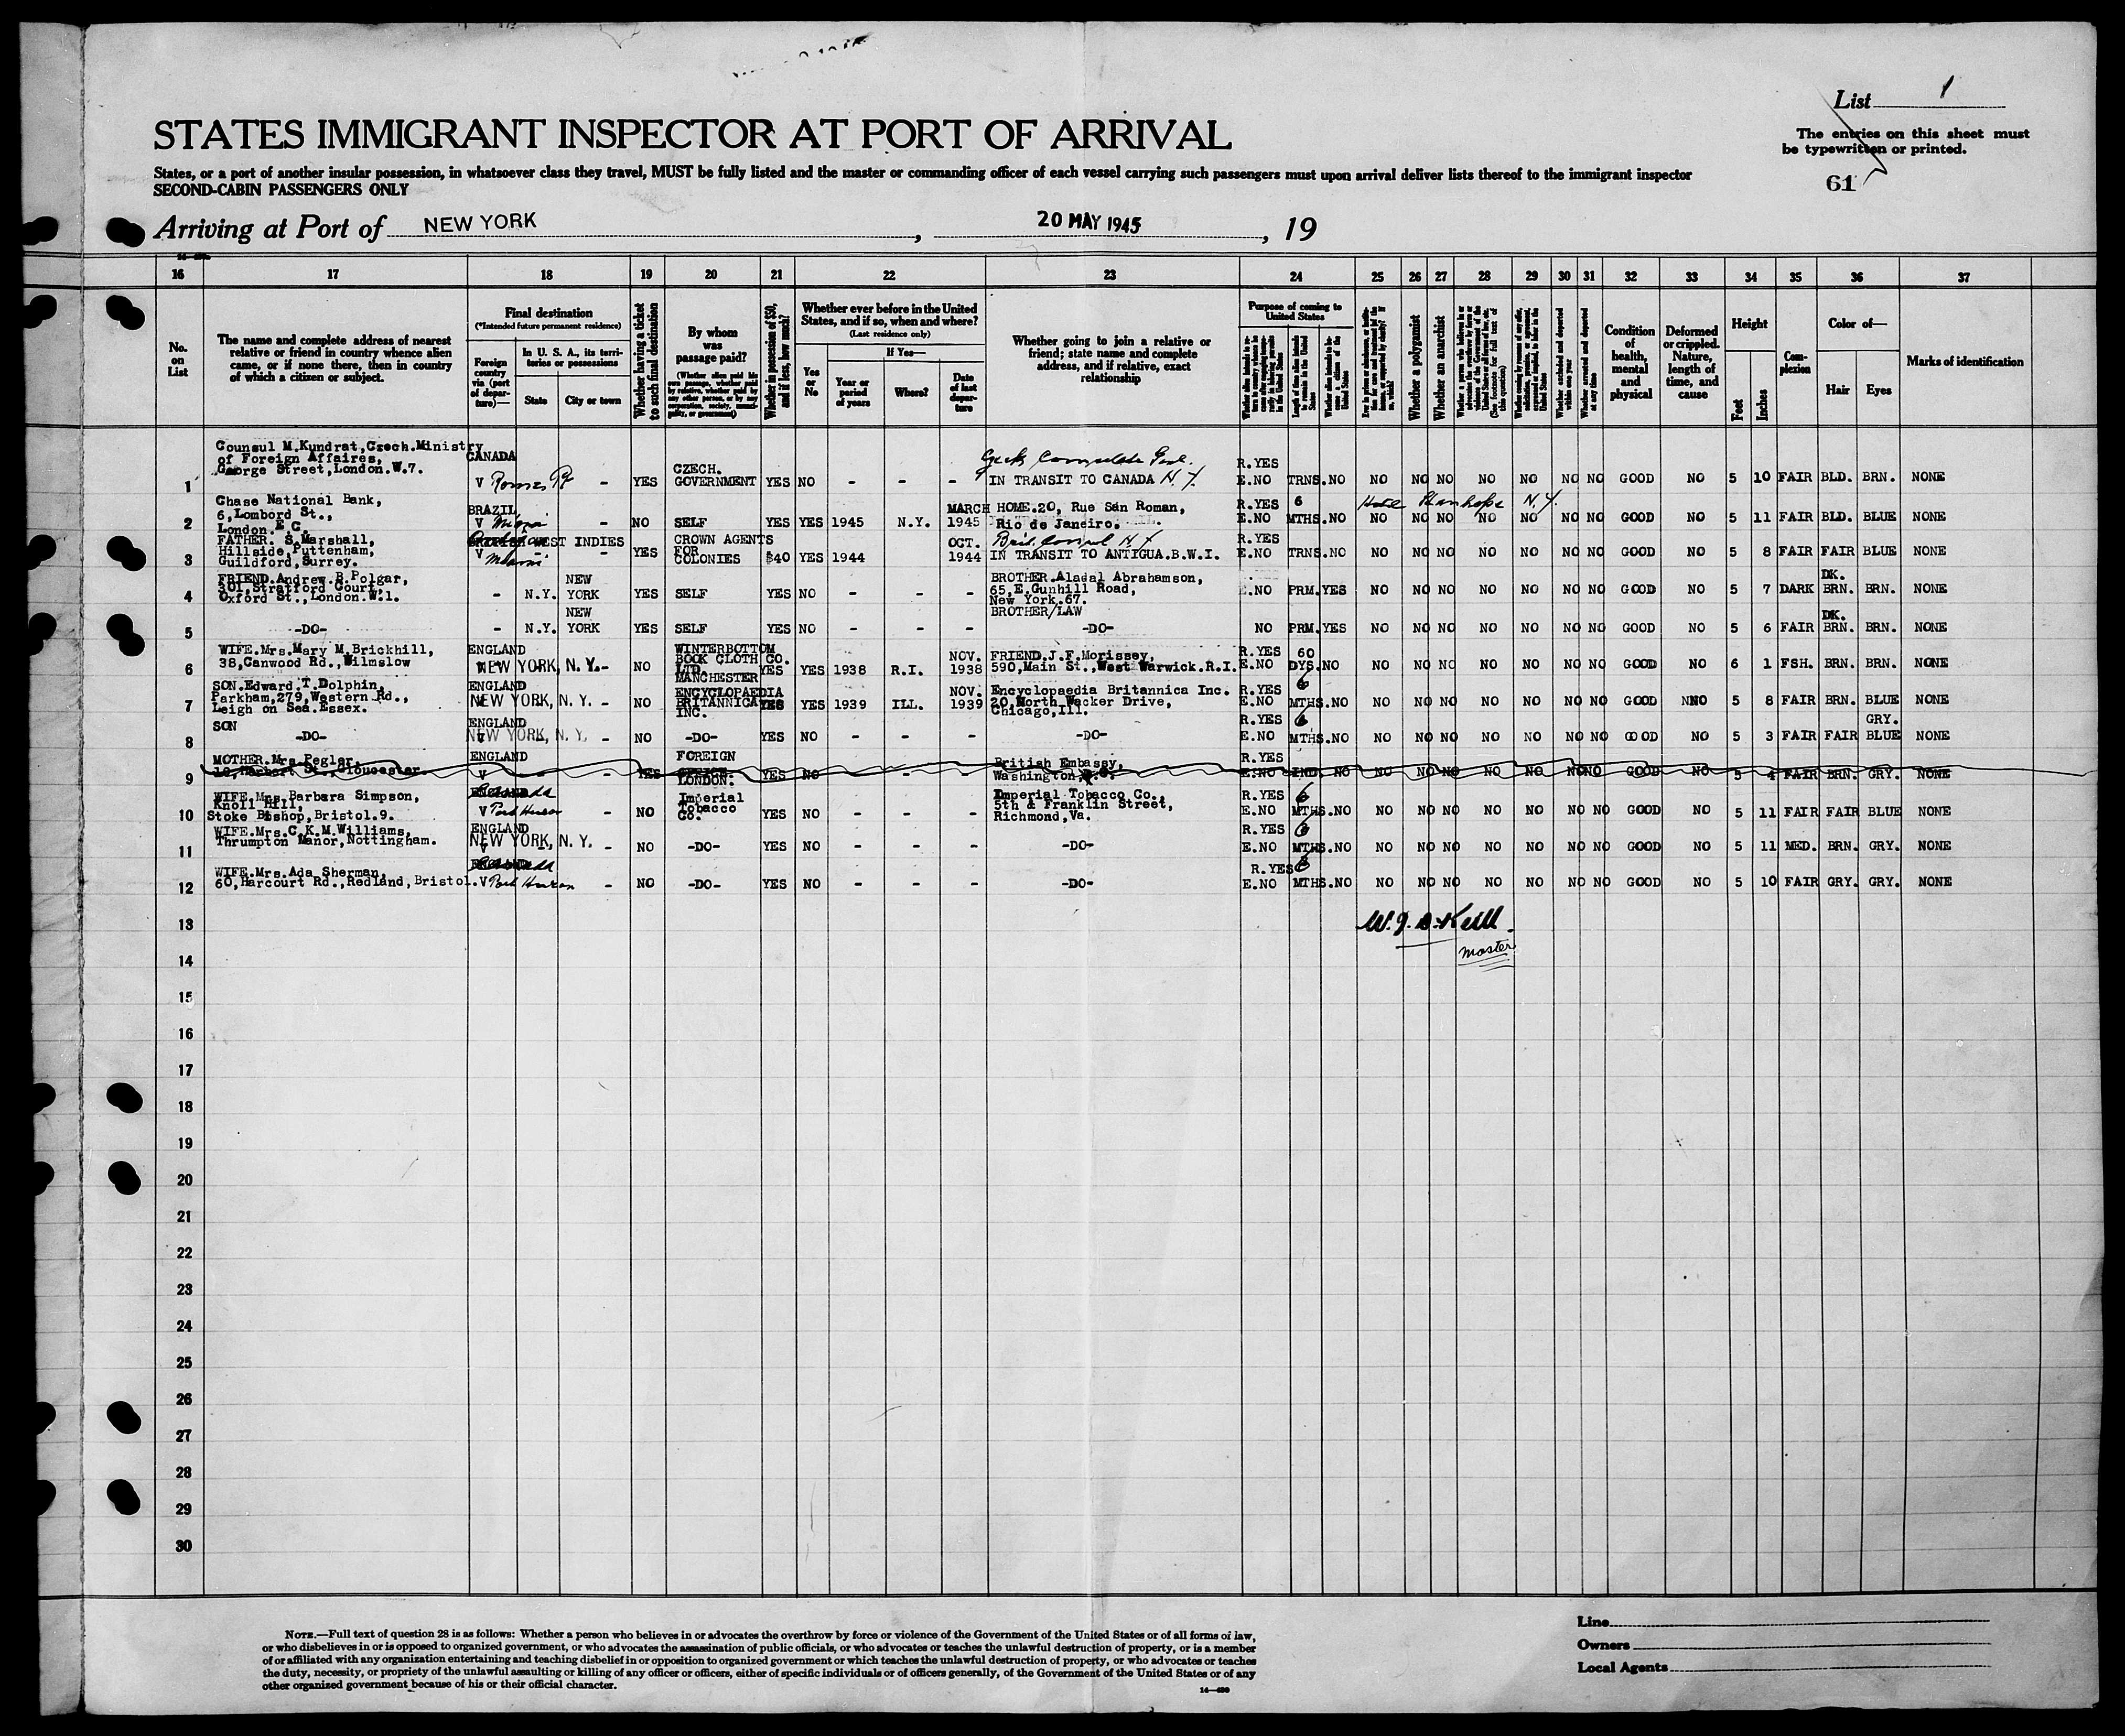 List 1
STATES IMMIGRANT INSPECTOR AT PORT OF ARRIVAL
The entries on this sheet must
be typewritten or printed.
States, or a port of another insular possession, in whatsoever class they travel, MUST be fully listed and the master or commanding officer of each vessel carrying such passengers must upon arrival deliver lists thereof to the immigrant inspector
SECOND-CABIN PASSENGERS ONLY
61
Arriving at Port of NEW YORK, 20 MAY 1945, 19
16 17 18 19 20 21 22 23 24 25 26 27 28 29 30 31 32 33 34 35 36 37
No. on List
The name and complete address of nearest
relative or friend in country whence alien
came, or if none there, then in country
of which a citizen or subject.
Final destination
(*Intended future permanent residence)
Foreign country via (port of departure)—
In U. S. A., its territories or possessions
State
City or town
Whether having a ticket to such final destination
By whom was passage paid?
(Whether alien paid his own passage, whether paid by relative, whether paid by any other person, or by any corporation, society, municipality, or government)
Whether in possession of $50, and if less, how much?
Whether ever before in the United States, and if so, when and where?
(Last residence only)
Yes or No
If Yes—
Year or period of years
Where?
Date of last departure
Whether going to join a relative or
friend; state name and complete
address, and if relative, exact
relationship
Purpose of coming to United States
Length of time alien intends to remain in the United States
Whether a polygamist
Whether an anarchist
Whether excluded and deported within one year
Whether arrested and deported at any time
Condition of health, mental and physical
Deformed or crippled. Nature, length of time, and cause
Height
Feet
Inches
Complexion
Color of—
Hair
Eyes
Marks of identification
Counsul M.Kundrat,Czech.Ministry
of Foreign Affaires,
George Street,London.W.7.
CANADA
1 V - YES CZECH. GOVERNMENT YES NO - - - IN TRANSIT TO CANADA N.Y. R.YES E.NO TRNS. NO NO NO NO NO NO NO NO GOOD NO 5 10 FAIR BLD. BRN. NONE
Chase National Bank,
6,Lombord St.,
London.E.C,
BRAZIL
2 V - NO SELF YES YES 1945 N.Y. MARCH 1945 HOME.20, Rue San Roman, Rio de Janeiro. R.YES E.NO 6 MTHS. NO Hotel Stanhope N.Y. NO NO NO NO NO NO NO GOOD NO 5 11 FAIR BLD. BLUE NONE
FATHER. S.Marshall,
Hillside,Puttenham,
Guildford,Surrey.
BRITISH WEST INDIES
3 V Miami - - YES CROWN AGENTS FOR COLONIES $40 YES 1944 OCT. 1944 Brit. Consul N.Y. IN TRANSIT TO ANTIGUA.B.W.I. R.YES E.NO TRNS. NO NO NO NO NO NO NO NO GOOD NO 5 8 FAIR FAIR BLUE NONE
FRIEND.Andrew.B.Polgar,
301,Stratford Court,
Oxford St.,London.W.1.
4 - N.Y. NEW YORK YES SELF YES NO - - - BROTHER.Aladal Abrahamson, 65,E.Gunhill Road, New York.67. E.NO PRM. YES NO NO NO NO NO NO NO GOOD NO 5 7 DARK DK. BRN. BRN. NONE
5 -DO- - N.Y. NEW YORK YES SELF YES NO - - - BROTHER/LAW -DO- NO PRM. YES NO NO NO NO NO NO NO GOOD NO 5 6 FAIR DK. BRN. BRN. NONE
WIFE.Mrs.Mary M.Brickhill,
38,Canwood Rd.,Wilmslow
ENGLAND
6 V NEW YORK, N. Y. - NO WINTERBOTTOM BOOK CLOTH CO. LTD. MANCHESTER YES YES 1938 R.I. NOV. 1938 FRIEND.J.F.Morissey, 590,Main St.,West Warwick.R.I. R.YES E.NO 60 DYS. NO NO NO NO NO NO NO NO GOOD NO 6 1 FSH. BRN. BRN. NONE
SON.Edward.T.Dolphin,
Parkham,279,Western Rd.,
Leigh on Sea.Essex.
ENGLAND
7 NEW YORK, N. Y. - NO ENCYCLOPAEDIA BRITANNICA INC. YES YES 1939 ILL. NOV. 1939 Encyclopaedia Britannica Inc. 20,North Wacker Drive, Chicago,Ill. R.YES E.NO 6 MTHS. NO NO NO NO NO NO NO NO GOOD NNO 5 8 FAIR BRN. BLUE NONE
SON
ENGLAND
8 -DO- V NEW YORK, N. Y. - NO -DO- YES NO - - - -DO- R.YES E.NO 6 MTHS. NO NO NO NO NO NO NO NO GOOD NO 5 3 FAIR FAIR GRY. BLUE NONE
MOTHER.Mrs.Pegler,
St.,Gloucester.
ENGLAND
9 V - - YES FOREIGN OFFICE LONDON. YES NO - - British Embassy, Washington,D.C. R.YES E.NO IND. NO NO NO NO NO NO NO NO GOOD NO 5 4 FAIR BRN. GRY. NONE
WIFE.Mrs.Barbara Simpson,
Knoll Hill,
Stoke Bishop,Bristol.9.
ENGLAND Canada
10 V Port Huron - NO Imperial Tobacco Co. YES NO - - - Imperial Tobacco Co., 5th & Franklin Street, Richmond,Va. R.YES E.NO 6 MTHS. NO NO NO NO NO NO NO NO GOOD NO 5 11 FAIR FAIR BLUE NONE
WIFE.Mrs.C.K.M.Williams,
Thrumpton Manor,Nottingham.
ENGLAND
11 V NEW YORK, N. Y. - NO -DO- YES NO - - - -DO- R.YES E.NO 6 MTHS. NO NO NO NO NO NO NO NO GOOD NO 5 11 MED. BRN. GRY. NONE
WIFE.Mrs.Ada Sherman,
60,Harcourt Rd.,Redland,Bristol.
ENGLAND Canada
12 V Port Huron - NO -DO- YES NO - - - -DO- R.YES E.NO 6 MTHS. NO NO NO NO NO NO NO NO GOOD NO 5 10 FAIR GRY. GRY. NONE
13
Master
14
15
16
17
18
19
20
21
22
23
24
25
26
27
28
29
30
NOTE.—Full text of question 28 is as follows: Whether a person who believes in or advocates the overthrow by force or violence of the Government of the United States or of all forms of law,
or who disbelieves in or is opposed to organized government, or who advocates the assassination of public officials, or who advocates or teaches the unlawful destruction of property, or is a member
of or affiliated with any organization entertaining and teaching disbelief in or opposition to organized government or which teaches the unlawful destruction of property, or who advocates or teaches
the duty, necessity, or propriety of the unlawful assaulting or killing of any officer or officers, either of specific individuals or of officers generally, of the Government of the United States or of any
other organized government because of his or their official character.
Line
Owners
Local Agents